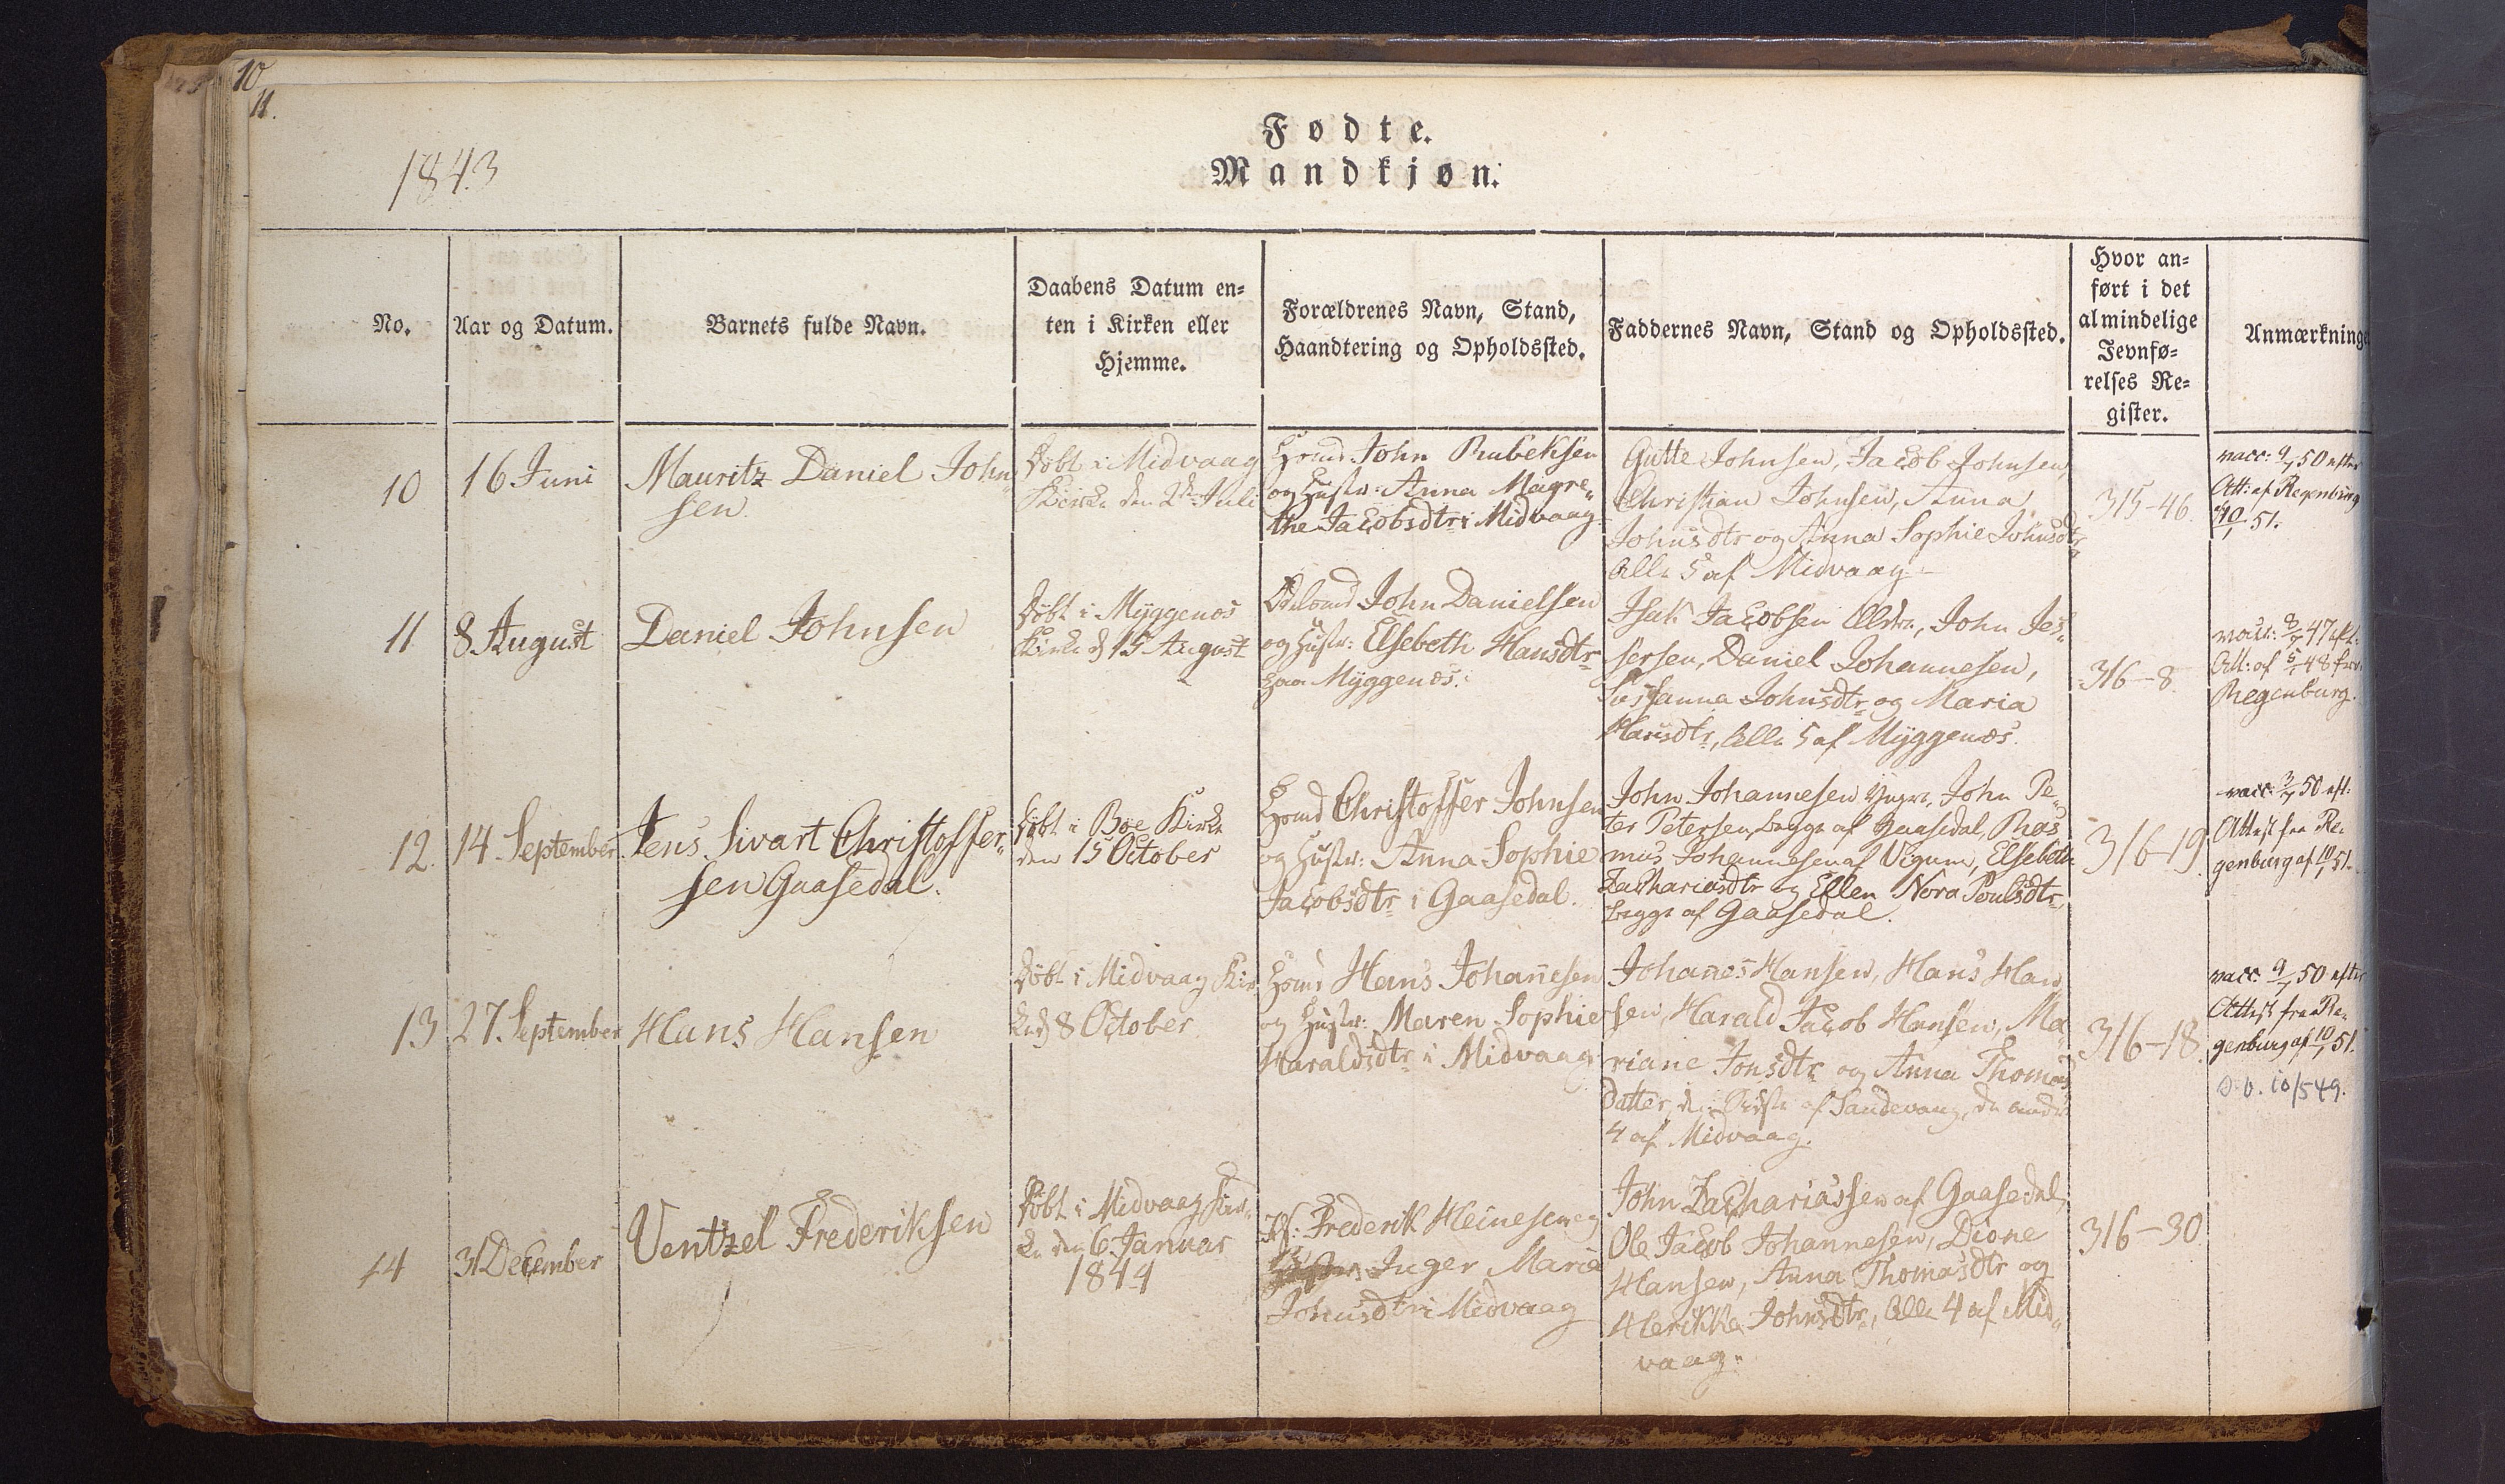 10
11.
1843
Fødte.
Mandkjøn.
No.
Aar og Datum.
Barnets fulde Navn.
Daabens Datum en=
ten i Kirken eller
Hjemme.
Forældrenes Navn, Stand,
Haandtering og Opholdssted.
Faddernes Navn, Stand og Opholdssted.
Hvor an=
ført i det
almindelige
Jevnfø=
relses Re=
gister.
Anmærkninge
10
16 Juni
Mauritz Daniel John
sen.
Døbt i Midvaag
Kirke den 2de Juli
Hmd. John Rubeksen
og Hustr: Anna Magre„
the Jacobsdtr i Midvaag.
Gutte Johnsen, Jacob Johnsen,
Christian Johnsen, Anna
Johnsdtr og Anna Sophie Johnsdtr
Alle 5 af Midvaag.
315-46.
vacc: 9/7 50 efter
Att: af Regenburg
10/1 51.
11
8 August
Daniel Johnsen
Døbt i Myggenæs
Kirke d 15 August
Odelsmd John Danielsen
og Hustr: Elsebeth Hansdtr
paa Myggenæs.
Isak Jacobsen Ældre, John Jes„
persen, Daniel Johannesen,
Susanna Johnsdtr og Maria
Hansdtr, Alle 5 af Myggenæs.
316-8.
vacc: 8/7 47 eft:
Att: af 5/1 48 fra
Regenburg.
12.
14. September
Jens Sivart Christoffer„
sen Gaasedal.
Døbt i Bøe Kirke
den 15 October
Hmd Christoffer Johnsen
og Hustr: Anna Sophie
Jacobsdtr i Gaasedal.
John Johannesen Yngre, John Pe„
ter Petersen, begge af Gaasedal, Ras
mus Johannesen af Vigum, Elsebeth
Zachariasdtr og Ellen Nora Poulsdtr
begge af Gaasedal.
316-19.
vacc: 3/7 50 eft:
Attest fra Re„
genburg af 10/1 51.
13
27. September
Hans Hansen
Døbt i Midvaag Kir
ke d 8 October
Hmd Hans Johan̄esen
og Hustr: Maren Sophie
Haraldsdtr i Midvaag
Johan̄es Hansen, Hans Han
sen, Harald Jacob Hansen, Ma
riane Jonsdtr og Anna Thomas
datter, den Sidste af Sandevaag, de andre
4 af Midvaag.
316-18.
vacc. 9/7 50 efter
Attest fra Re„
genburg af 10/1 51.
14
31 December
Ventzel Frederiksen
Døbt i Midvaag Kir„
ke den 6. Januar
1844
Frederik Heinesen og
Inger Maria
Johnsdtr i Midvaag
John Zachariassen af Gaasedal,
Ole Jacob Johannesen, Dione
Hansen, Anna Thomasdtr og
Henrikka Johnsdtr, Alle 4 af Mid„
vaag.
316-30.